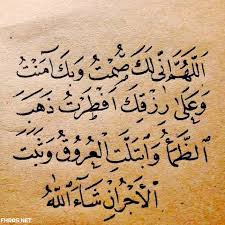 اَللّٰهُمَّ اِنِّى لَكَ صُمْتُ وَبِكَ آمَنْتُ
وَعَلَى رِزْقِكَ اَفْطَرْتُ ذَهَبَ
الظَّمَأُ وَابْتَلَّتِ الْعُرُوقُ وَثَبَتَ
الْاَجْرُ اِنْ شَاءَ اللهُ
FHRAS.NET